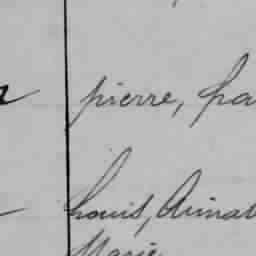 pierre, pa
Louis, Aimab
Marie